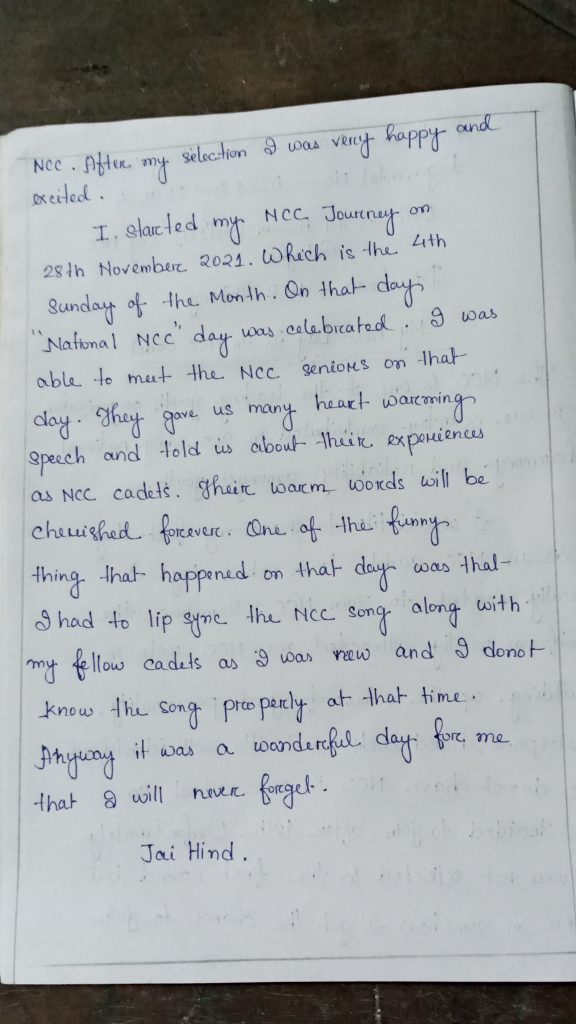 NCC. After my selection I was very happy and
excited.
I. started my NCC Journey on
28th November 2021. Which is the 4th
Sunday of the Month. On that day
"National NCC" day was celebrated. I was
able to meet the NCC seniors on that
day. They gave us many heart warming
speech and told us about their experiences
as NCC cadets. Their warm words will be
cherished forever. One of the funny
thing that happened on that day was that
I had to lip sync the NCC song along with
my fellow cadets as I was new and I donot
know the song properly at that time.
Anyway it was a wonderful day for me
that I will never forget.
Jai Hind.